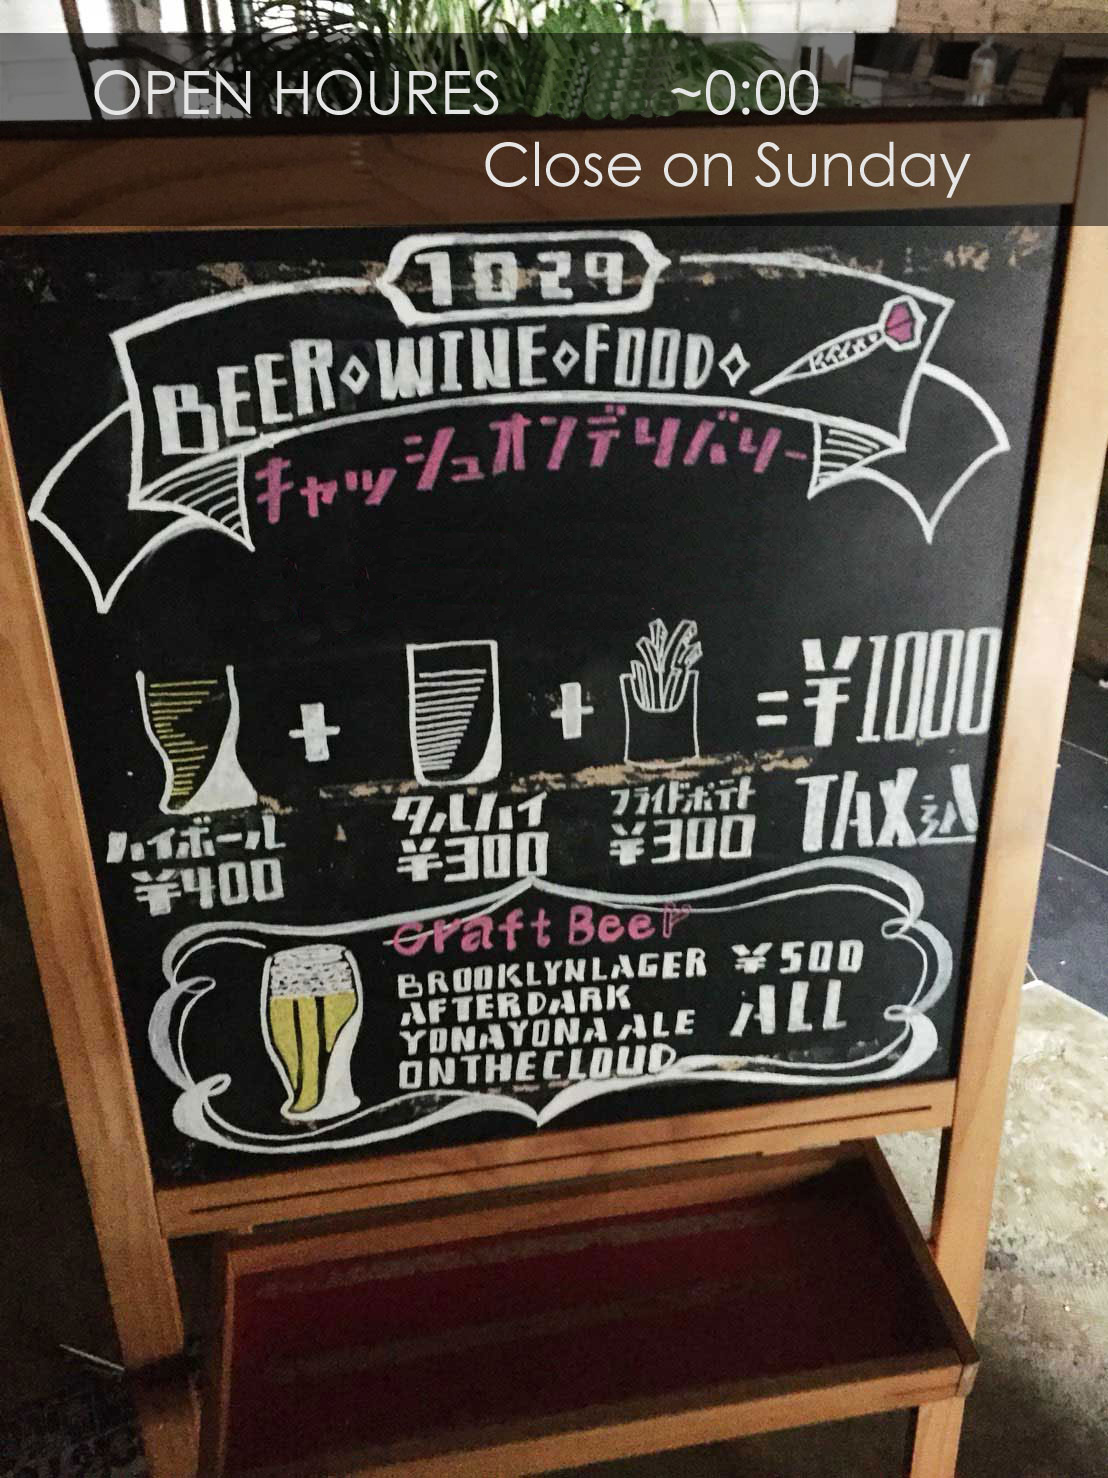 OPEN HOURES ~0:00
Close on Sunday
1029
BEER◇WINE◇FOOD◇
キャッシュオンデリバリー
+ + =¥1000
ハイボール タルハイ フライドポテト TAX込
¥400 ¥300 ¥300
craft Beer
BROOKLYNLAGER ¥500
AFTERDARK ALL
YONAYONA ALE
ONTHECLOUD